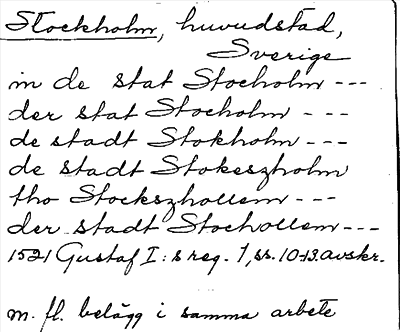 Stockholm, huvudstad,
Sverige
in de stat Stocholm ---
der stat Stocholm ---
de stadt Stokholm ---
de stadt Stokeszholm
tho Stockszhollem ---
der stadt Stochollem ---
1521 Gustaf I:s reg. 1, ss. 10-13. avskr.
m. fl. belägg i samma arbete